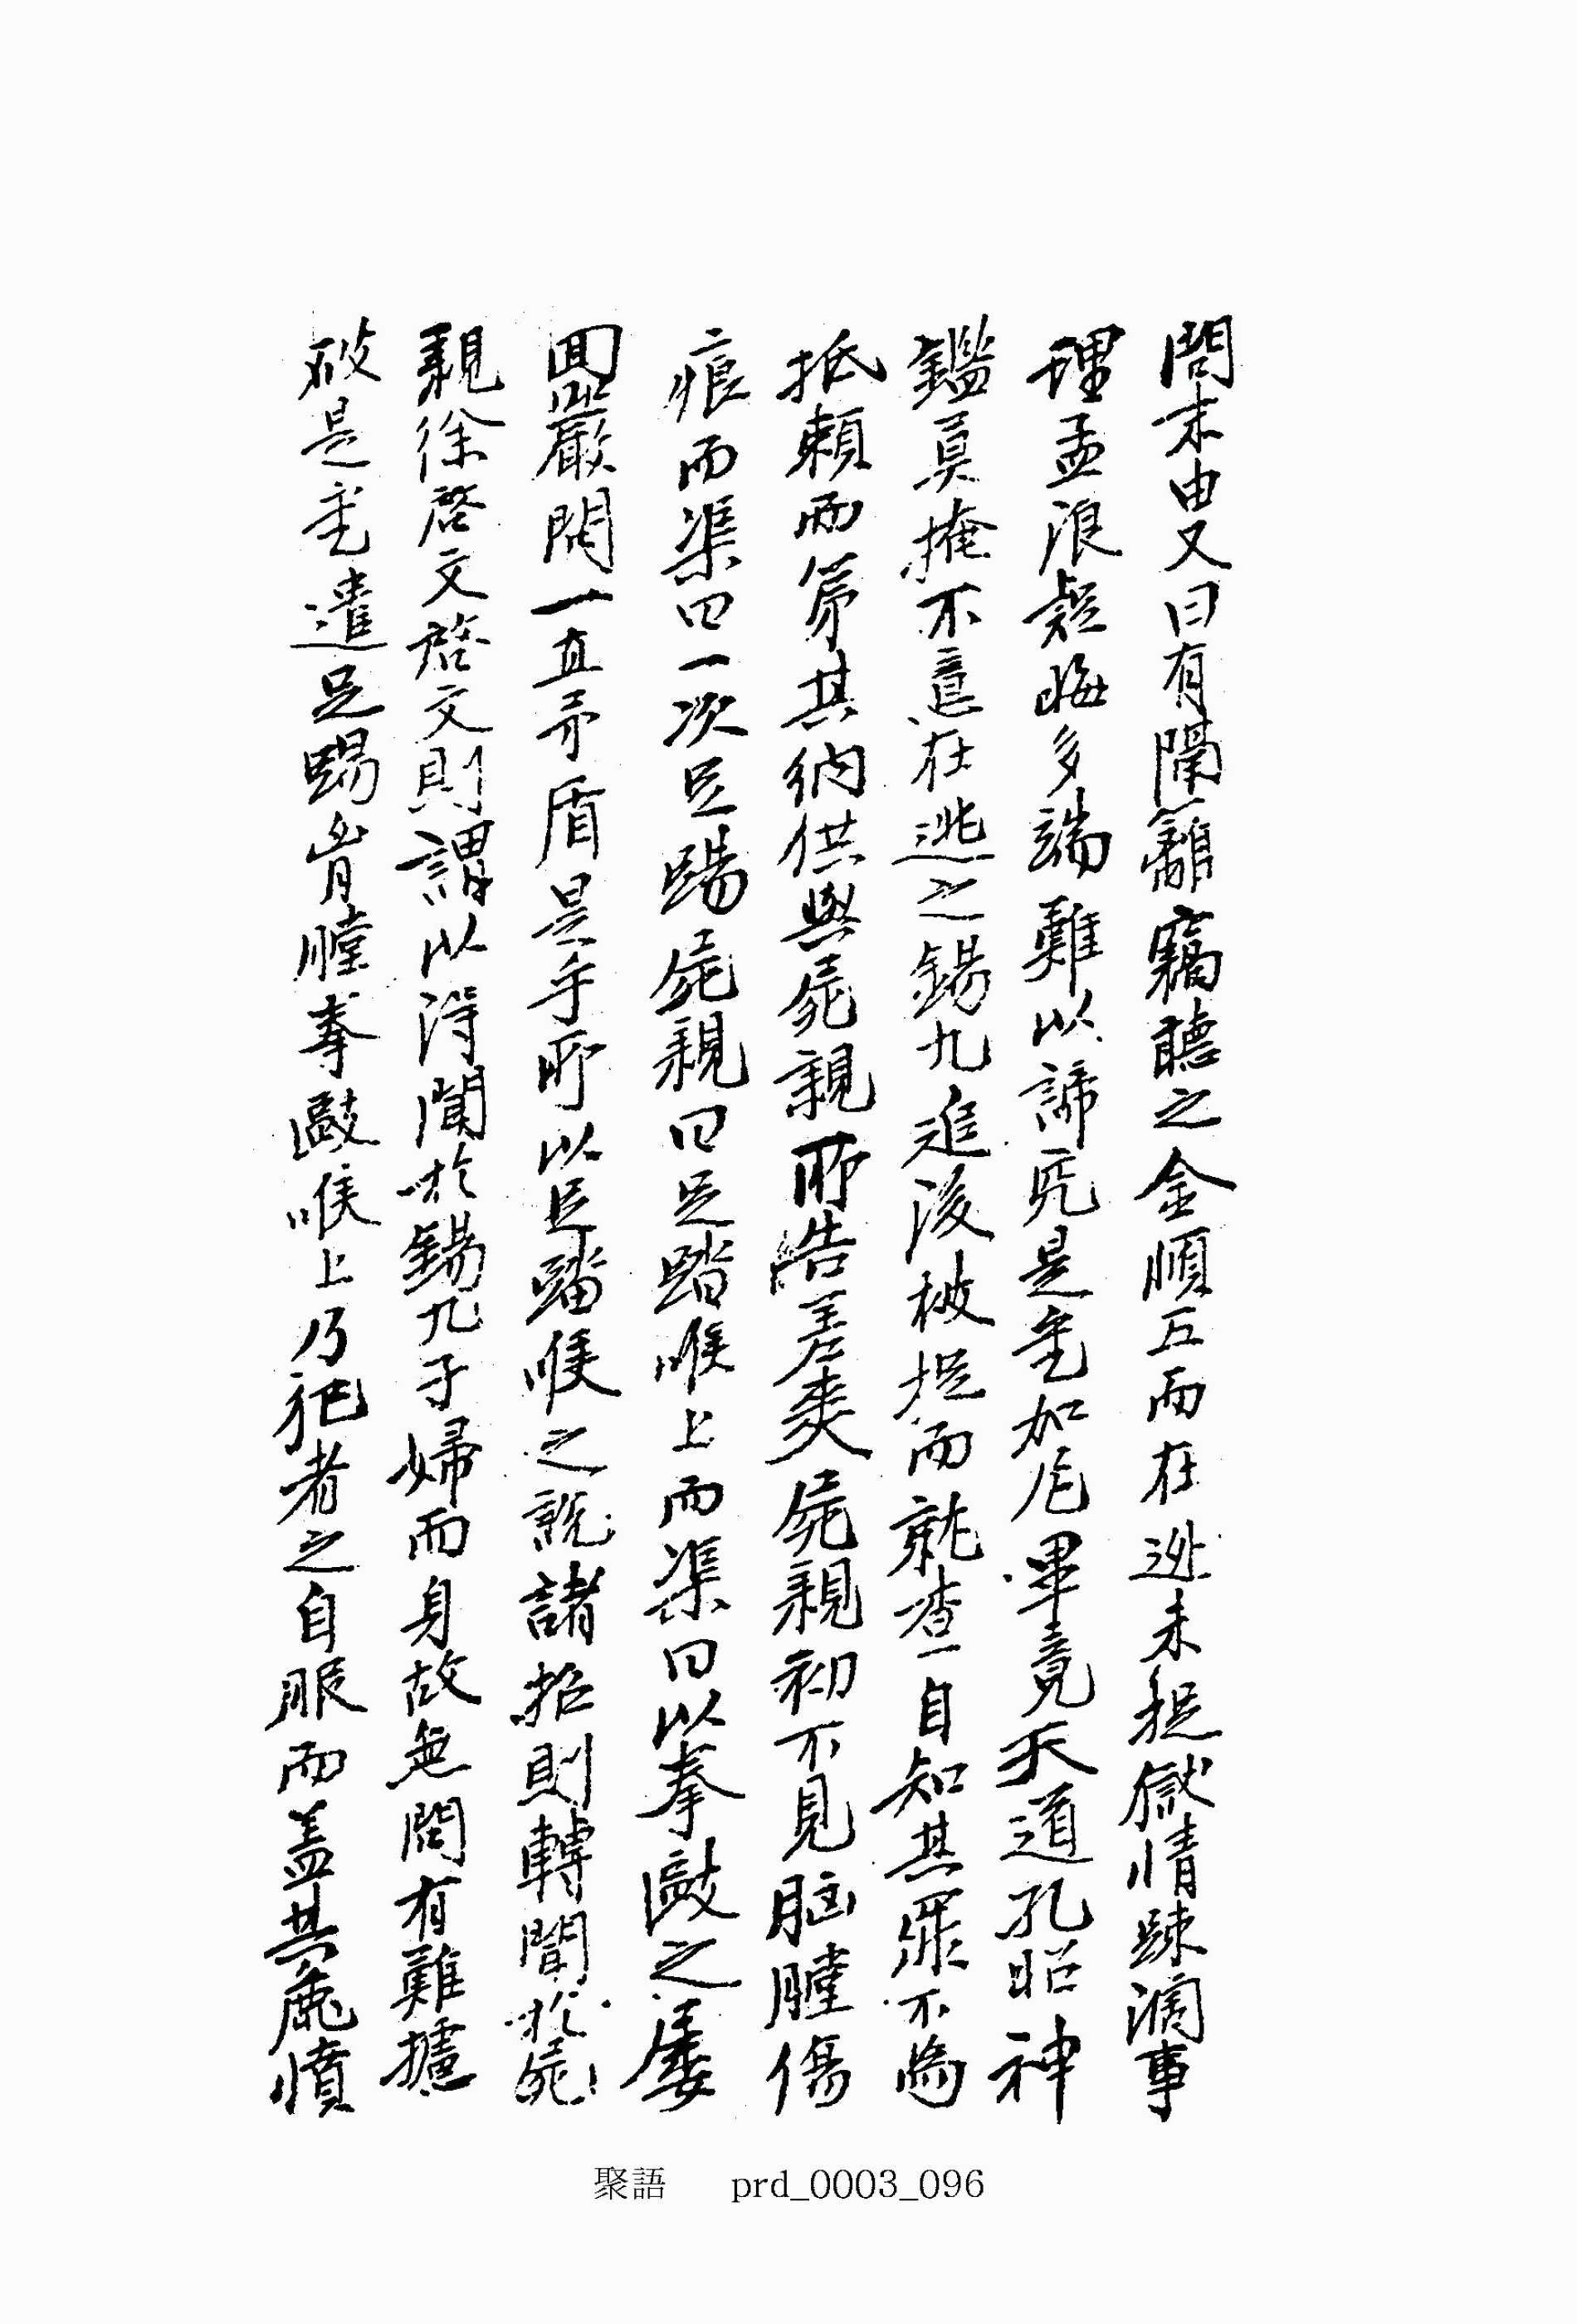 問末由又曰有隔籬竊聽之金順五而在逃未捉獄情踈漏事
理孟浪疑晦多端難以諦視是乎加尼畢竟天道孔昭神
鑑莫掩不意在逃之錫九追後被捉而就查一自知其罪不為
抵賴而第其納供與屍親所告差爽屍親初不見脑膛傷
痕而渠曰一次足踢屍親曰足踏喉上而渠曰以拳敺之屢
回嚴問一直矛盾是乎所以足踏喉之說諸招則轉聞於屍
親徐啓文啓文則謂以得聞於錫九子婦而身故無問有難據
破是乎遣足踢脊膛拳敺喉上乃犯者之自服而盖其麁憤
聚語 prd_0003_096